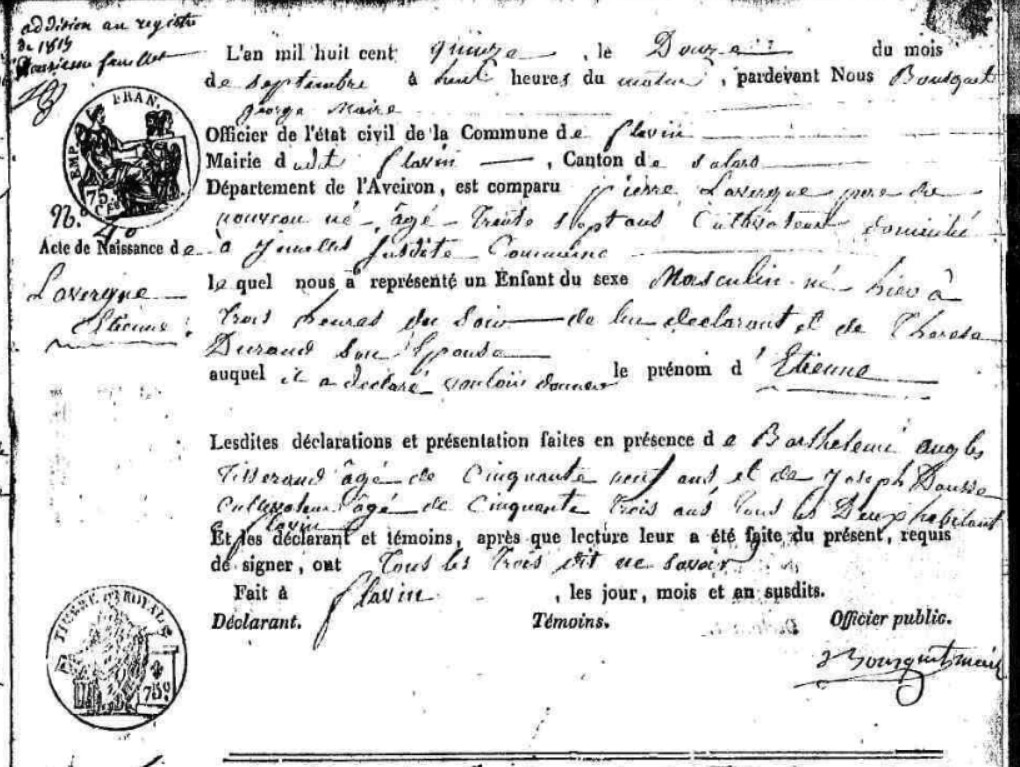 addition au registre
de 1815
feuillet
L'an mil huit cent quinze, le Douze du mois
de septembre à huit heures du matin, pardevant Nous Bousquet
george Maire
Officier de l'état civil de la Commune de flavin
Mairie dudt flavin, Canton de Salars
Département de l'Aveiron, est comparu pierre Lavergne pere du
nouveau né âgé Trente Sept ans Cultivateur domicilié
à Jumelles Susdite Commune
EMP. FRAN.
75
N.º 40
Acte de Naissance de
Lavergne
Etienne
lequel nous a représenté un Enfant du sexe Masculin né hier à
Trois heures du Soir de lui declarant et de Theresa
Durand Son Epouse
auquel il a declaré vouloir donner le prénom d'Etienne
Lesdites déclarations et présentation faites en présence de Barthelemi angles
Tisserand âgé de Cinquante neuf ans et de Joseph Bousse
Cultivateur âgé de Cinquante Trois ans Tous les Deux habitant
flavin
Et les déclarant et témoins, après que lecture leur a été faite du présent, requis
de signer, ont Tous les Trois dit ne Savoir
Fait à flavin, les jour, mois et an susdits.
Déclarant. Témoins. Officier public.
Bousquet maire
TIMBRE ROYAL
75c